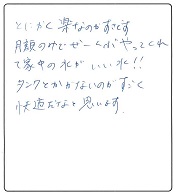 とにかく楽なのがすてきです
月額のみでぜーんぶやってくれ
て家中の水がいい水!!
タンクとかないのがすごく
快適だなぁと思います。